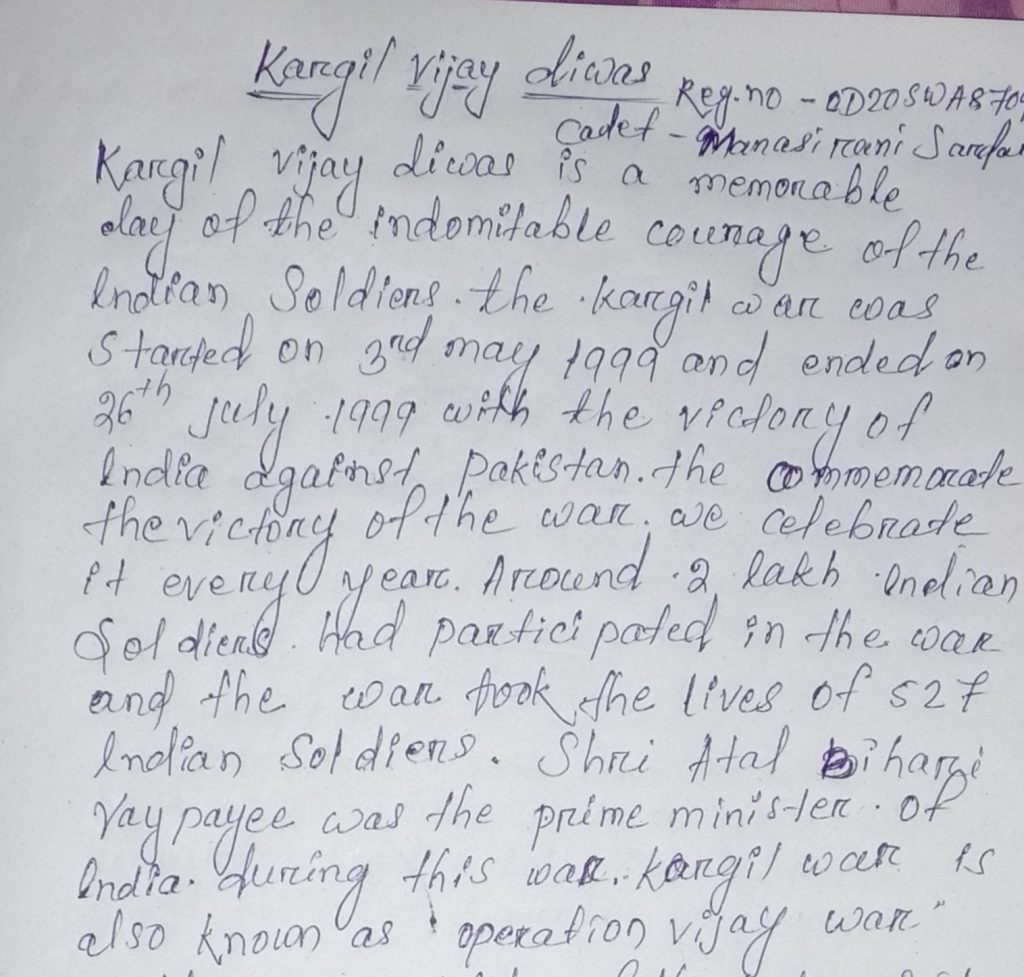 Kargil Vijay diwas
Reg.no - OD20SWA870
Cadet - Manasi rani Sarda
Kargil vijay diwas is a memorable
day of the indomitable courage of the
Indian Soldiers. the kargil war was
Started on 3rd may 1999 and ended on
26th july 1999 with the victory of
India against Pakistan. the commemorate
the victory of the war. we celebrate
it every year. Around 2 lakh Indian
Soldiers. Had participated in the war
and the war took the lives of 527
Indian Soldiers. Shri Atal Bihari
Vaypayee was the prime minister of
India. during this war. kargil war is
also known as "operation vijay war"